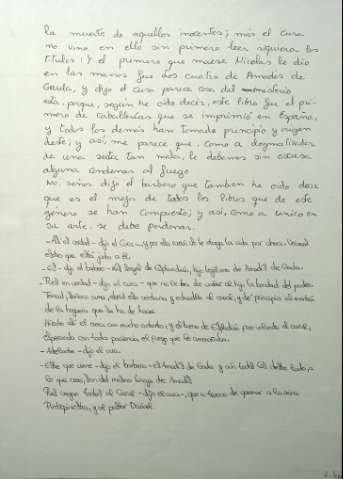 la muerte de aquellos inocentes; mas el cura
no vino en ello sin primero leer siquiera los
títulos. Y el primero que maese Nicolás le dio
en las manos fue Los cuatro de Amadís de
Gaula, y dijo el cura parece cosa de misterio
esta, porque, según he oído decir, este libro fue el pri-
mero de Caballerías que se imprimió en España,
y todos los demás han tomado principio y origen
deste; y así, me parece que, como a dogmatizador
de una secta tan mala, le debemos sin excusa
alguna condenar al fuego
No, señor dijo el barbero que también he oído decir
que es el mejor de todos los libros que de este
género se han compuesto; y así, como a único en
su arte, se debe perdonar.
-Así es verdad - dijo el Cura-, y por esa razón se le otorga la vida por ahora. Veamos
esotro que está junto a él.
-Es - dijo el barbero - las Sergas de Esplandián, hijo legítimo de Amadís de Gaula.
-Pues en verdad - dijo el cura - que no le ha de valer al hijo la bondad del padre.
Tomad, señora ama, abrid esa ventana y echadle al corral, y dé principio al montón
de la hoguera que se ha de hacer.
Hízolo así el ama con mucho contento, y el bueno de Esplandián fue volando al corral,
esperando con toda paciencia el fuego que le amenazaba.
-Adelante - dijo el cura.
-Este que viene - dijo el barbero - es Amadís de Grecia y aún todos los deste lado, a
lo que creo, son del mesmo linaje de Amadís
Pues vayan todos al Corral - dijo el cura -, que a trueco de quemar a la reina
Pintiquiniestra, y al pastor Darinel